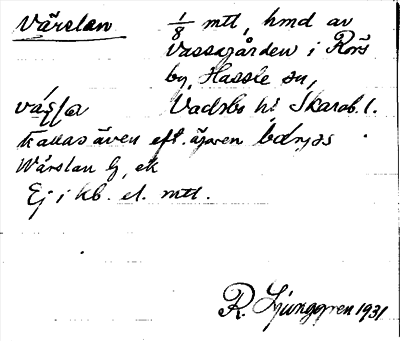 Värslan 1/8 mtl, hmd av
Vassagården i Rörs
by, Hassle sn,
Vadsbo hd Skarab. l.
Kallas även eft. ägaren
Wärslan G, ek
Ej i kb. el. mtl.
R. Ljunggren 1931